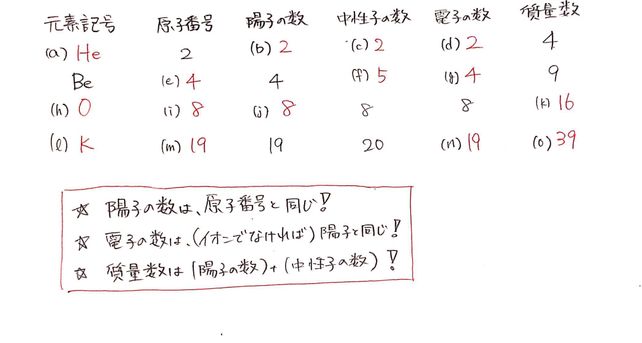 元素記号 原子番号 陽子の数 中性子の数 電子の数 質量数
(a) He 2 (b) 2 (c) 2 (d) 2 4
Be (e) 4 4 (f) 5 (g) 4 9
(h) O (i) 8 (j) 8 8 8 (k) 16
(l) K (m) 19 19 20 (n) 19 (o) 39
☆ 陽子の数は、原子番号と同じ!
☆ 電子の数は、(イオンでなければ)陽子と同じ!
☆ 質量数は(陽子の数)+(中性子の数)!